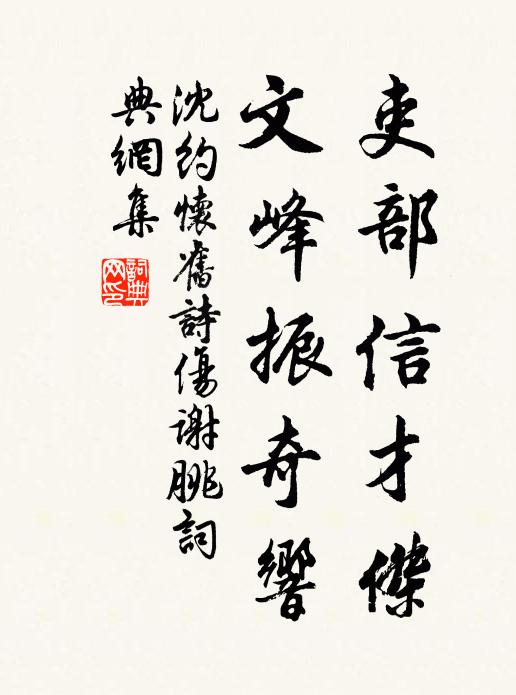 吏部信才傑
文峰振奇響
沈約懷舊詩傷謝朓詞
典網集
詞典
网印